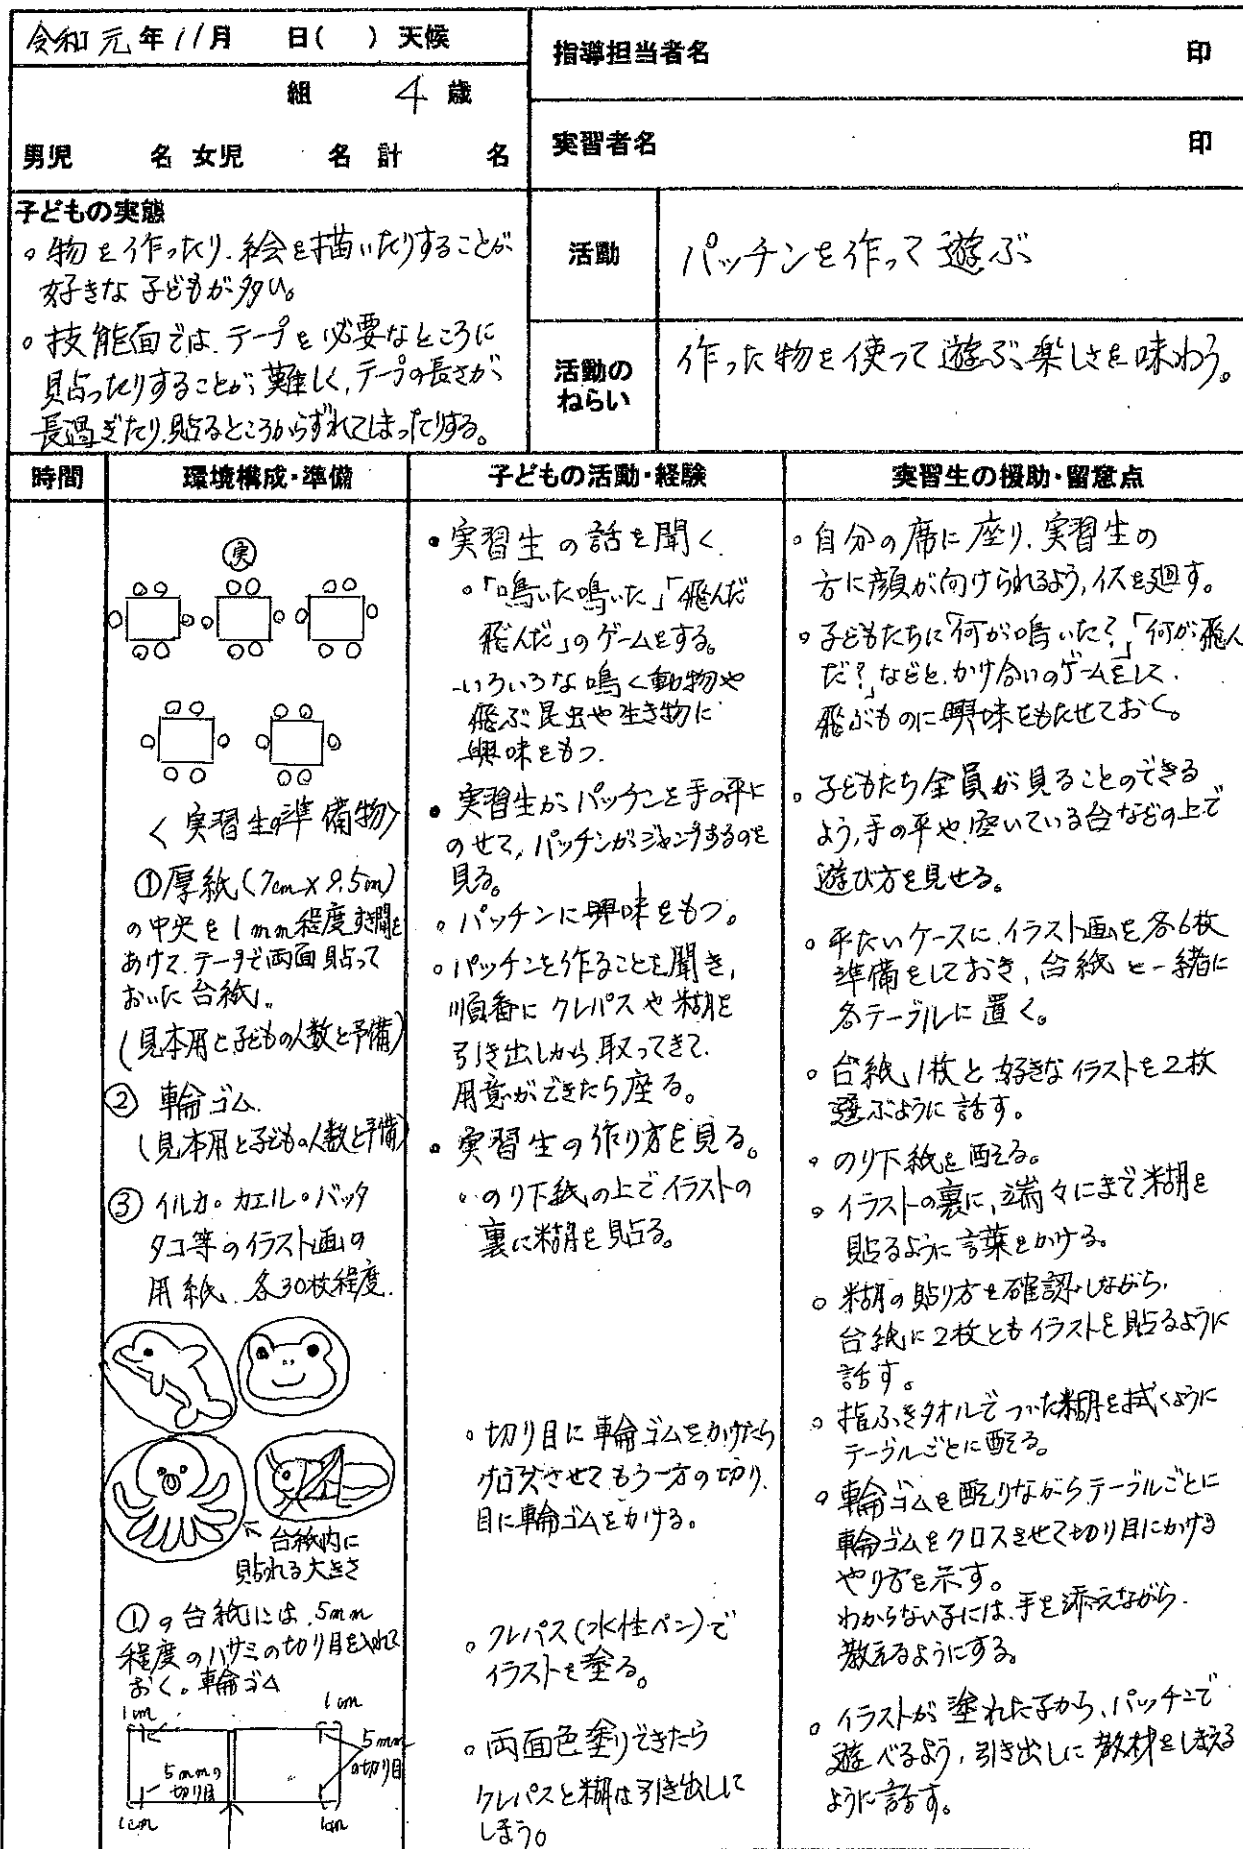 令和元年11月 日( ) 天候
組 4歳
男児 名 女児 名 計 名
指導担当者名 印
実習者名 印
子どもの実態
。物を作ったり、絵を描いたりすることが
好きな子どもが多い。
。技能面では、テープを必要なところに
貼ったりすることが難しく、テープの長さが
長過ぎたり、貼るところからずれてしまったりする。
活動
パッチンを作って遊ぶ
活動の
ねらい
作った物を使って遊ぶ楽しさを味わう。
時間
環境構成・準備
子どもの活動・経験
実習生の援助・留意点
実
〈実習生の準備物〉
①厚紙(7cm×9.5cm)
の中央を1mm程度隙間を
あけて、テープで両面貼って
おいた台紙。
(見本用と子どもの人数と予備)
② 輪ゴム
(見本用と子どもの人数と予備)
③ イルカ・カエル・バッタ
タコ等のイラスト画の
用紙 各30枚程度
台紙内に
貼れる大きさ
①の台紙には、5mm
程度のハサミの切り目を入れて
おく。輪ゴム
1cm
1cm
5mm
の切り目
5mmの
切り目
1cm
1cm
・実習生の話を聞く。
。「鳴いた鳴いた」「飛んだ
飛んだ」のゲームをする。
・いろいろな鳴く動物や
飛ぶ昆虫や生き物に
興味をもつ。
・実習生がパッチンを手の平に
のせて、パッチンがジャンプするのを
見る。
。パッチンに興味をもつ。
。パッチンを作ることを聞き、
順番にクレパスや糊を
引き出しから取ってきて、
用意ができたら座る。
・実習生の作り方を見る。
。のり下紙の上でイラストの
裏に糊を貼る。
。切り目に輪ゴムをかけたら
クロスさせてもう一方の切り
目に輪ゴムをかける。
。クレパス(水性ペン)で
イラストを塗る。
。両面色塗りできたら
クレパスと糊は引き出しに
しまう。
。自分の席に座り、実習生の
方に顔が向けられるよう、イスを廻す。
。子どもたちに「何が鳴いた?」「何が飛ん
だ?」などと、かけ合いのゲームをして、
飛ぶものに興味をもたせておく。
。子どもたち全員が見ることのできる
よう、手の平や、空いている台などの上で
遊び方を見せる。
。平たいケースに、イラスト画を各6枚
準備をしておき、台紙と一緒に
各テーブルに置く。
。台紙1枚と好きなイラストを2枚
選ぶように話す。
。のり下紙を配る。
。イラストの裏に、端々にまで糊を
貼るように言葉をかける。
。糊の貼り方を確認しながら、
台紙に2枚ともイラストを貼るように
話す。
。指ふきタオルでついた糊を拭くように
テーブルごとに配る。
。輪ゴムを配りながらテーブルごとに
輪ゴムをクロスさせて切り目にかける
やり方を示す。
わからない子には、手を添えながら、
教えるようにする。
。イラストが塗れた子から、パッチンで
遊べるよう、引き出しに教材をしまえる
ように話す。